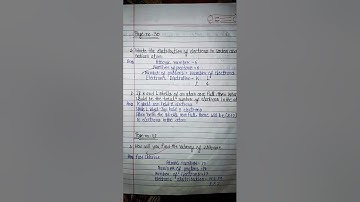 Page no:- 50
1. Write the distribution of electrons in carbon and sodium atom.
Ans Atomic number = 6
Number of protons = 6
Number of protons = Number of electrons
Electronic Distribution = K L
2. If K and L shells of an atom are full, then what would be the total number of electrons in the atom
Ans K shell can hold 2 electrons
L shell can hold 8 electrons
Page no:- 52
1. How will you find the valency of chlorine
Ans For Chlorine
Atomic number = 17
Number of protons = 17
Number of electrons = 17
Electronic distribution = K L M